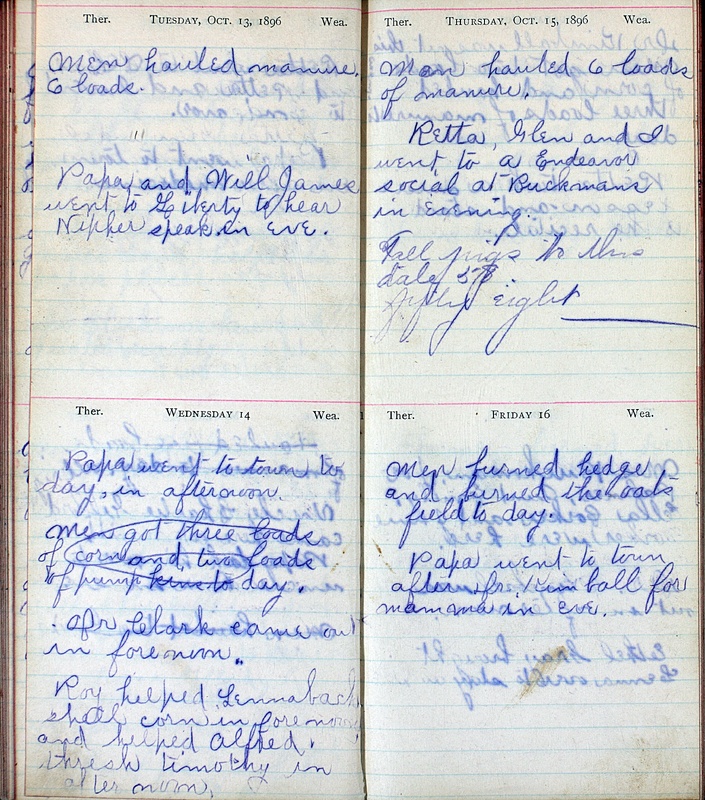 Ther. TUESDAY, OCT. 13, 1896 Wea.
Men hauled manure.
6 loads.
"
Papa and Will James
went to Liberty to hear
Nipher speak in eve.
Ther. WEDNESDAY 14 Wea.
Papa went to town to
day, in afternoon.
Men got three loads
of corn and two loads
of pumpkins to day.
Mr Clark came out
in forenoon.
Roy helped Lennabach
shell corn in forenoon
and helped Alfred
thresh timothy in
after noon.
Ther. THURSDAY, OCT. 15, 1896 Wea.
Men hauled 6 loads
of manure.
Retta, Glen and I
went to a Endeavor
social at Buckmans
in evening.
Fall pigs to this
date 58
fifty eight
Ther. FRIDAY 16 Wea.
Men burned hedge
and burned the oats
field to day.
Papa went to town
after Dr. Kimball for
mamma in eve.